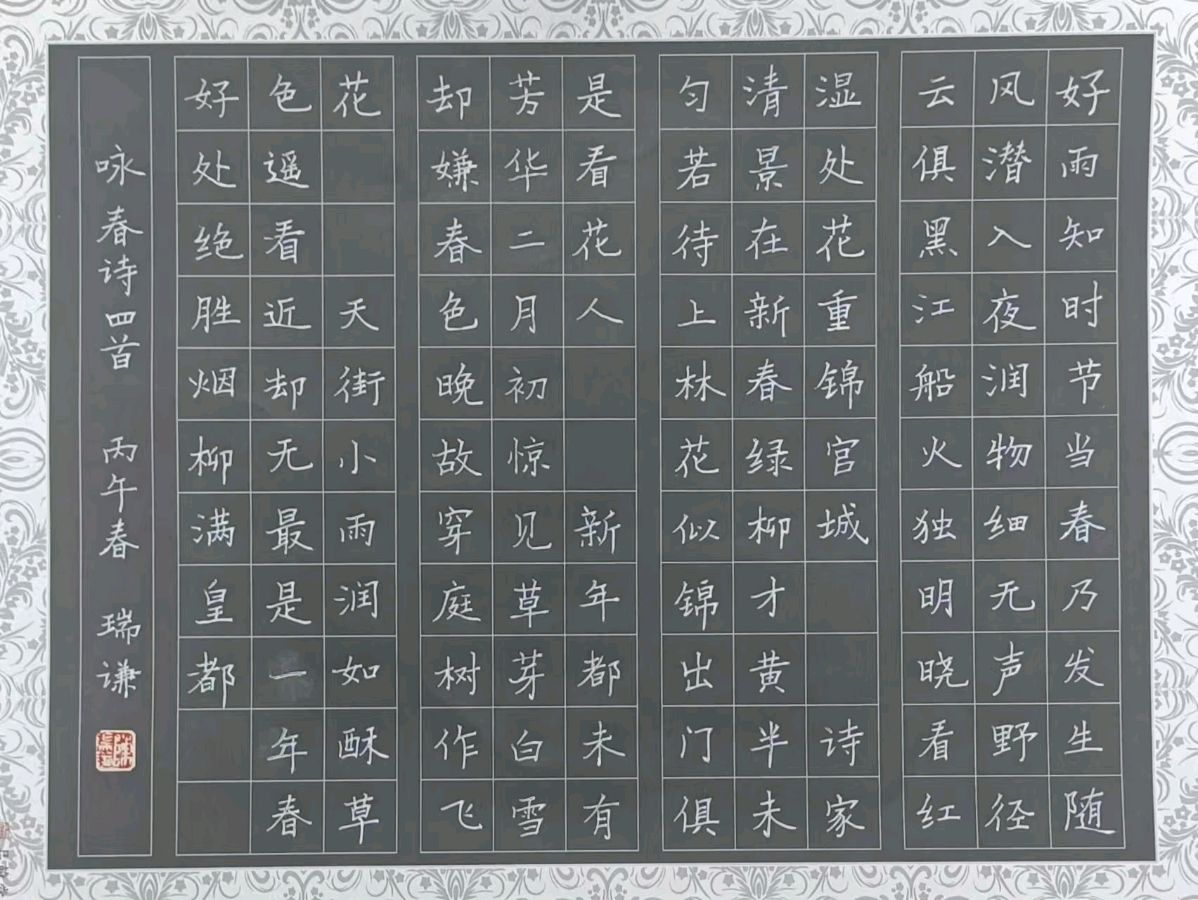 好雨知时节当春乃发生随
风潜入夜润物细无声野径
云俱黑江船火独明晓看红
湿处花重锦官城 诗家
清景在新春绿柳才黄半未
匀若待上林花似锦出门俱
是看花人 新年都未有
芳华二月初惊见草芽白雪
却嫌春色晚故穿庭树作飞
花 天街小雨润如酥草
色遥看近却无最是一年春
好处绝胜烟柳满皇都
咏春诗四首 丙午春 瑞谦